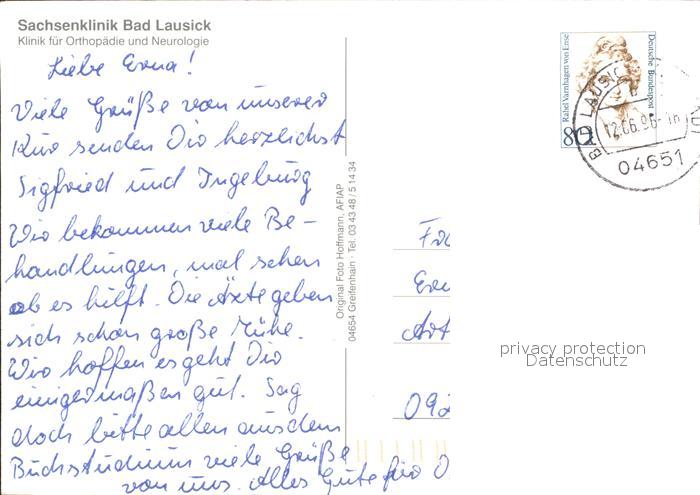 Sachsenklinik Bad Lausick
Klinik für Orthopädie und Neurologie
Liebe Erna!
Viele Grüße von unserer
Kur senden Dir herzlichst
Sigfried und Ingeburg
Wir bekommen viele Be-
handlungen, mal sehen
ob es hilft. Die Ärzte geben
sich schon große Mühe.
Wir hoffen es geht Dir
einigermaßen gut. Sag
doch bitte allen aus dem
Buchstudium viele Grüße
von uns. Alles Gute für D
Original Foto Hoffmann, AFIAP
04654 Greifenhain · Tel. 03 43 48 / 5 14 34
Rahel Varnhagen von Ense
Deutsche Bundespost
80
BAD LAUSICK
12.06.96
04651
Fr
Ern
092
privacy protection
Datenschutz